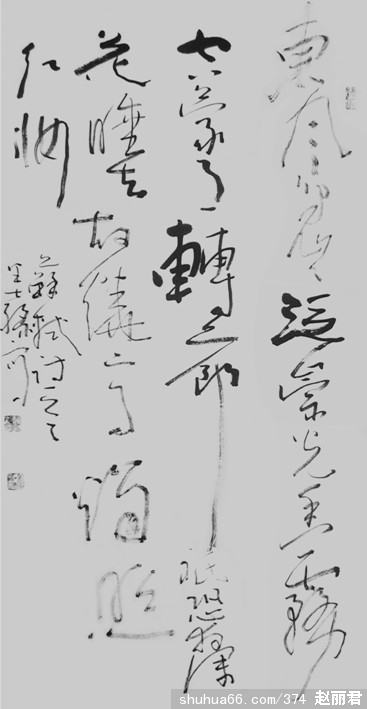 東風嫋嫋泛崇光香霧
空蒙月轉廊祇恐夜深
花睡去故燒高燭照
紅妝
蘇軾詩
shuhua66.com/374 赵丽君